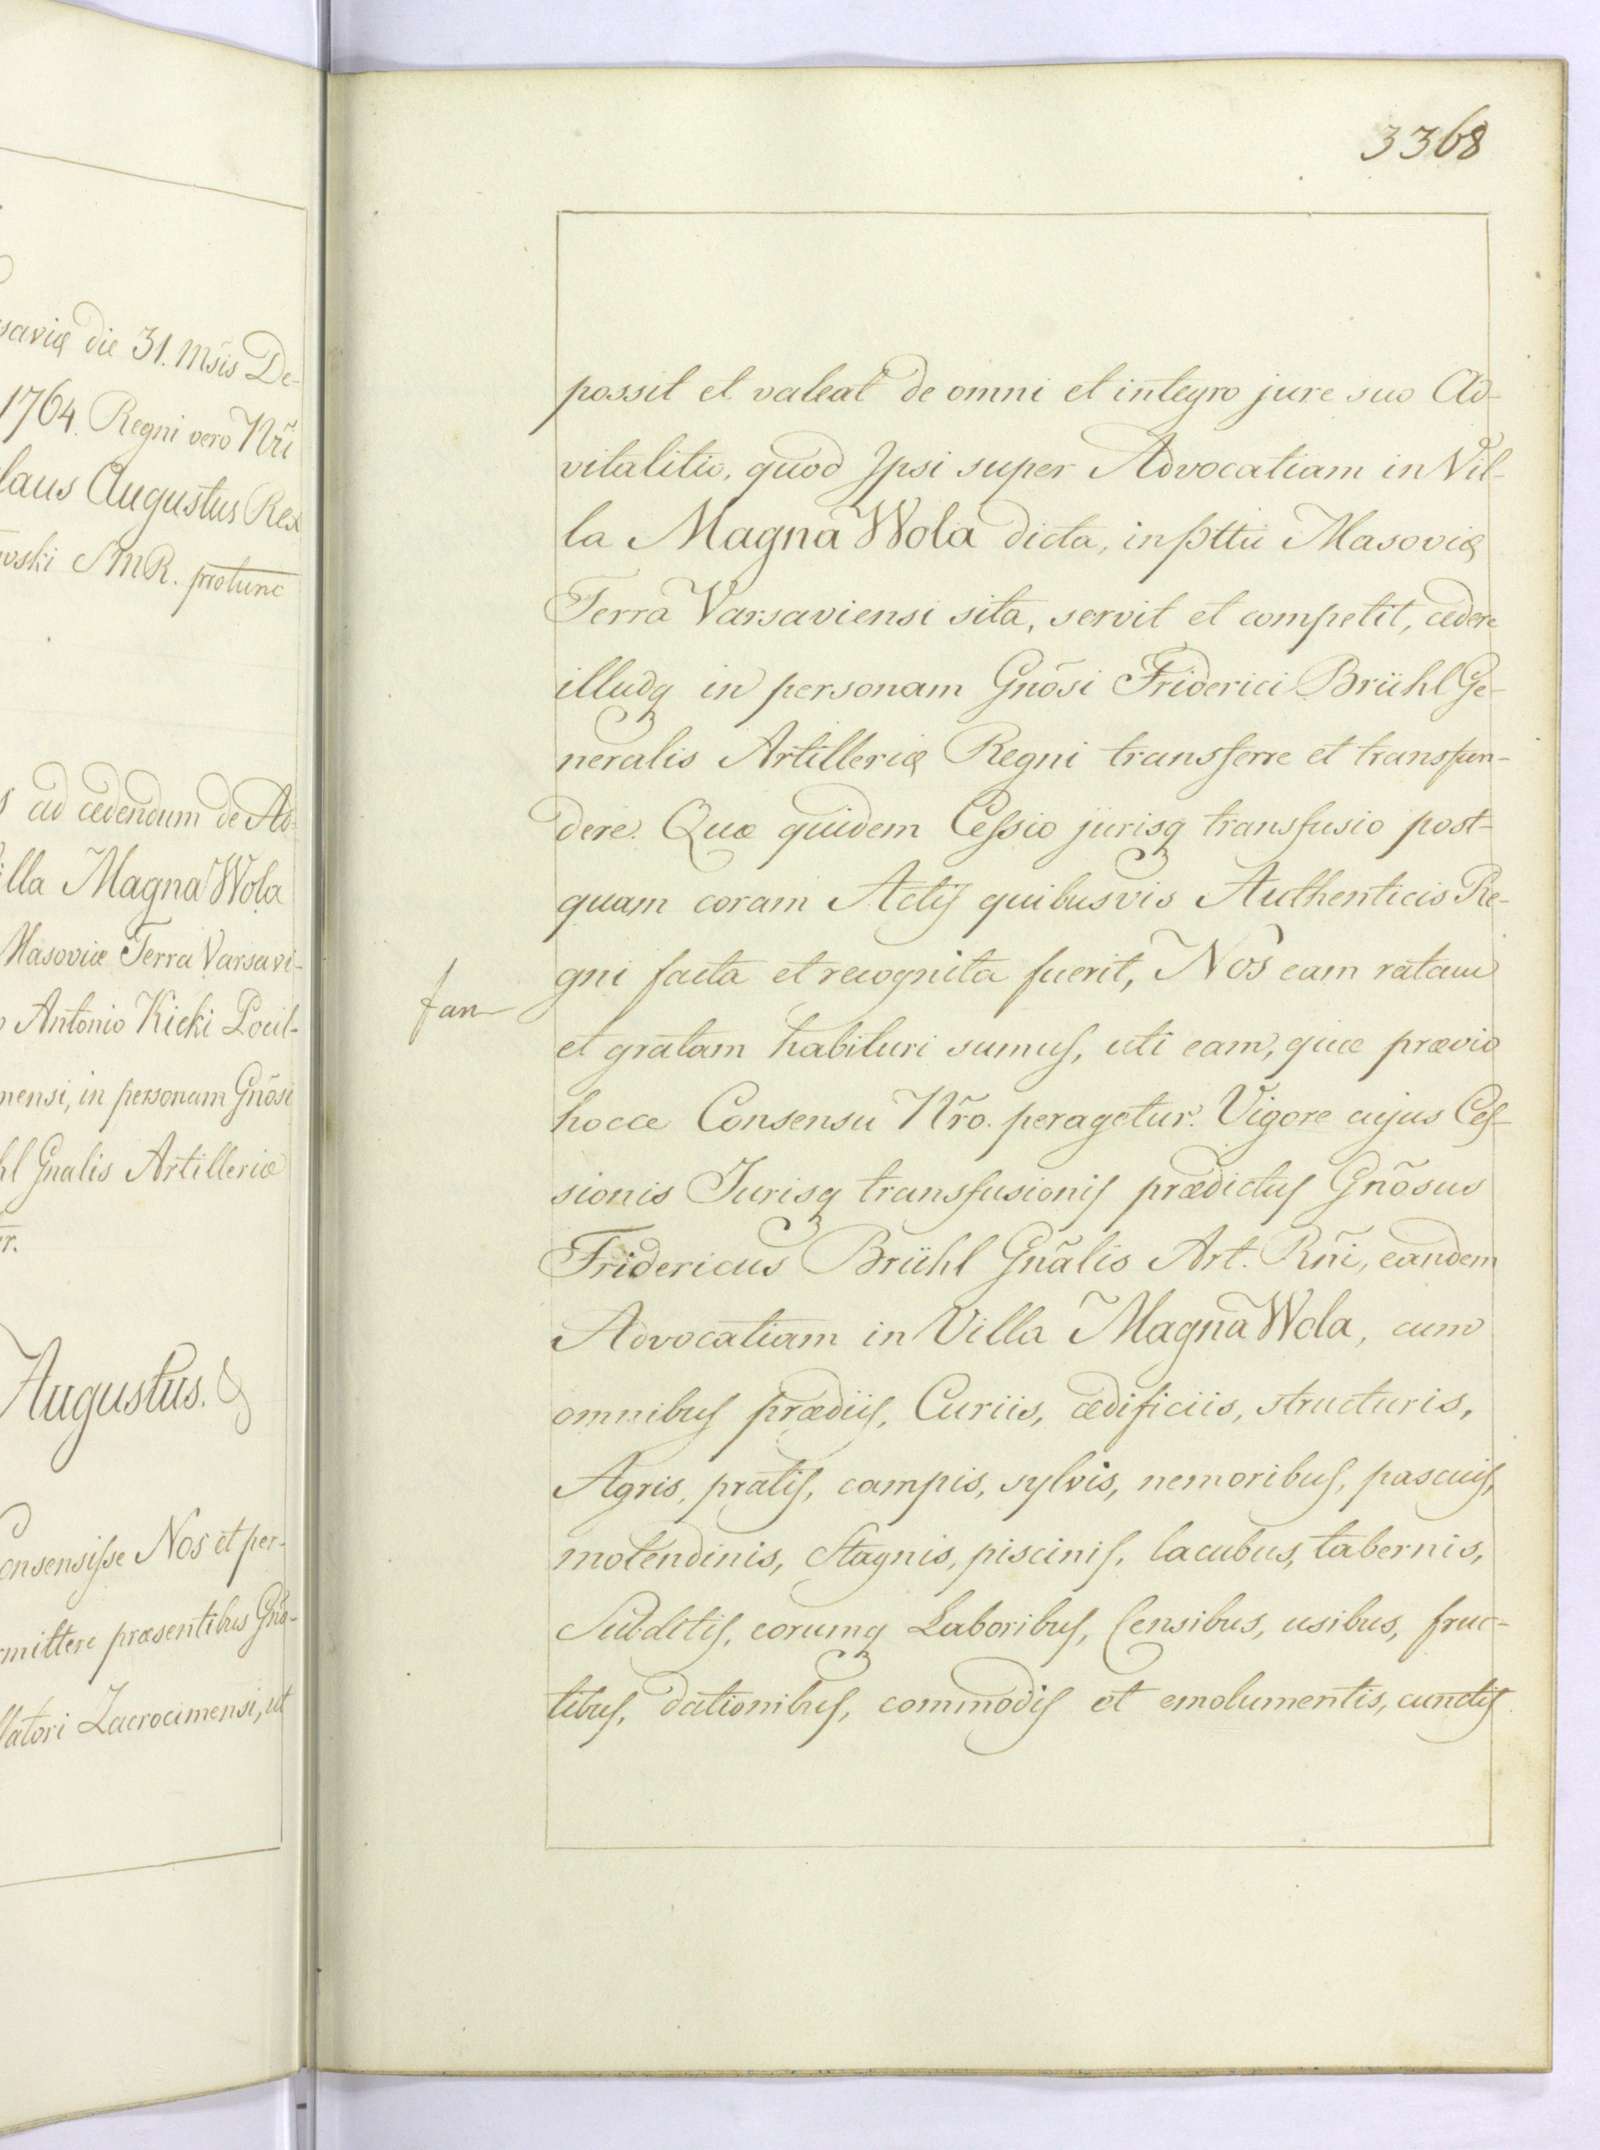 saviæ die 31. Msis De-
1764. Regni vero Nri
laus Augustus Rex
wski SMR. protunc
ad cedendum de Ad-
illa Magna Wola
Masoviæ Terra Varsavi-
Antonio Kicki Pocil-
mensi, in personam Gnõsi
hl Gnalis Artilleriæ
Augustus. &
onsensisse Nos et per-
mittere præsentibus Gño-
llatori Zacrocimensi, ut
3368
possit et valeat de omni et integro jure suo Ad-
vitalitio, quod Ipsi super Advocatiam in Vil-
la Magna Wola dicta, in Pttu Masoviæ
Terra Varsaviensi sita, servit et competit, cedere
illudq in personam Gnõsi Friderici Brühl Ge-
neralis Artilleriæ Regni transferre et transfun-
dere. Quæ quidem Cessio jurisq transfusio post-
quam coram Actis quibusvis Authenticis Re-
gni facta et recognita fuerit, Nos eam ratam
et gratam habituri sumus, uti eam, quæ prævio
hocce Consensu Nr̃o. peragetur. Vigore cujus Ces-
sionis Jurisq transfusionis prædictus Gnõsus
Fridericus Brühl Gñalis Art. Rñi, eandem
Advocatiam in Villa Magna Wola, cum
omnibus prædiis, Curiis, ædificiis, structuris,
Agris, pratis, campis, sylvis, nemoribus, pascuis,
molendinis, Stagnis, piscinis, lacubus, tabernis,
Subditis, eorumq Laboribus, Censibus, usibus, fruc-
tibus, dationibus, commodis et emolumentis, cunctis